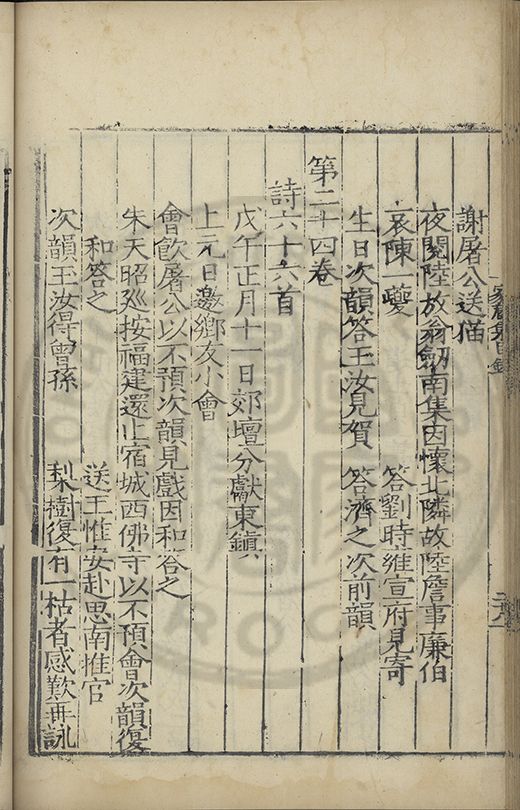 家藏集目錄
謝屠公送猫
夜閱陸放翁劔南集因懷北隣故陸詹事廉伯
哀陳一夔 答劉時雍宣府見寄
生日次韻答王汝見賀 答濟之次前韻
第二十四卷
詩六十六首
戊午正月十一日郊壇分獻東鎮
上元日邀鄉友小會
會飲屠公以不預次韻見戲因和答之
朱天昭廵按福建還止宿城西佛寺以不預會次韻復
和答之 送王惟安赴思南推官
次韻玉汝得曾孫 梨樹復有一枯者感歎再詠